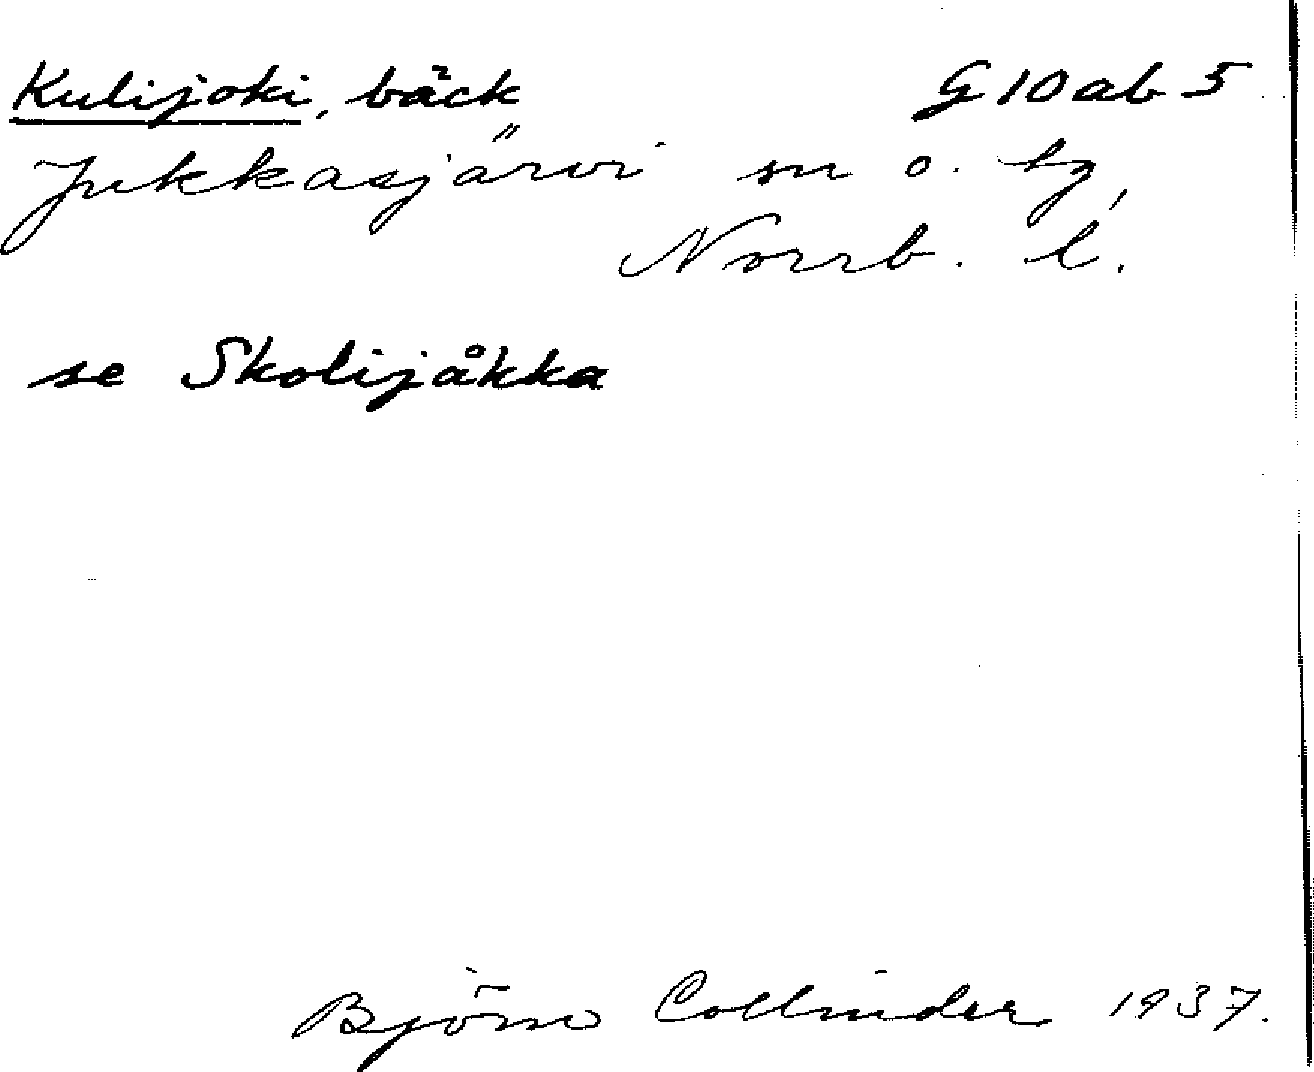 Kulijoki, bäck G 10 ab 5
Jukkasjärvi sn o. tg,
Norrb. l.
se Skolijåkka
Björn Collinder 1937.